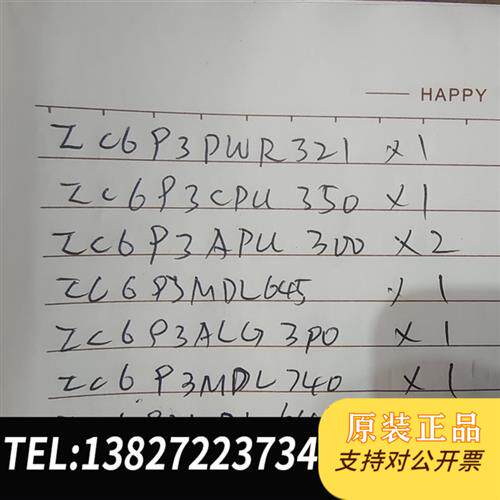 HAPPY
IC6P3PWR321 x1
IC6P3CPU350 x1
IC6P3APU300 x2
IC6P3MDL645 x1
IC6P3ALG3P0 x1
IC6P3MDL740 x1
TEL:13827223734
原装正品
支持对公开票